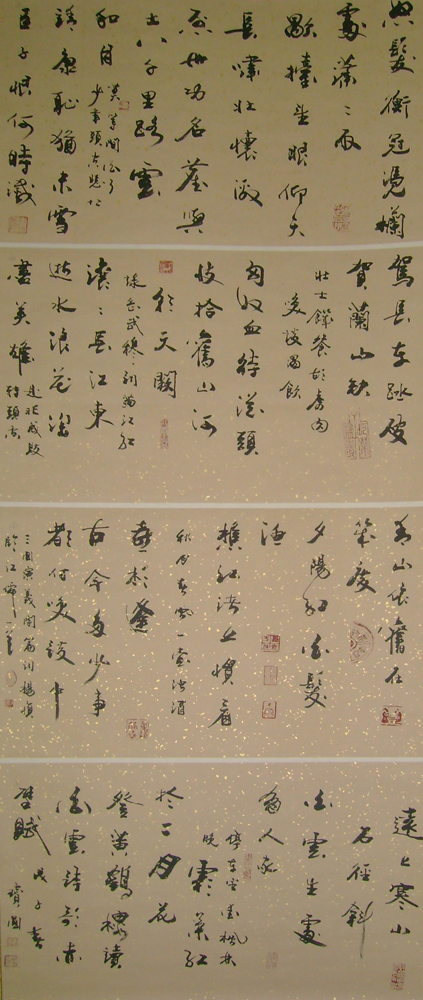 怒髮衝冠憑欄
處蕭〻雨
歇擡望眼仰天
長嘯壯懷激
烈卅功名塵與
土八千里路雲
和月
莫等閒白了
少年頭空悲切
靖康恥猶未雪
臣子恨何時滅
駕長車踏破
賀蘭山缺
壯士饑餐胡虜肉
笑談渴飲
匈奴血待從頭
收拾舊山河
朝天闕
岳武穆詞滿江紅
滾〻長江東
逝水浪花淘
盡英雄
是非成敗
轉頭空
青山依舊在
幾度
夕陽紅白髮
漁
樵江渚上慣看
秋月春風一壺濁酒
喜相逢
古今多少事
都付笑談中
三國演義開篇詞楊慎
臨江
遠上寒山
石徑斜
白雲生處
有人家
停車坐愛楓林
晚
霜葉紅
於二月花
登黃鶴樓讀
白雲詩歌赤
壁賦
戊子春